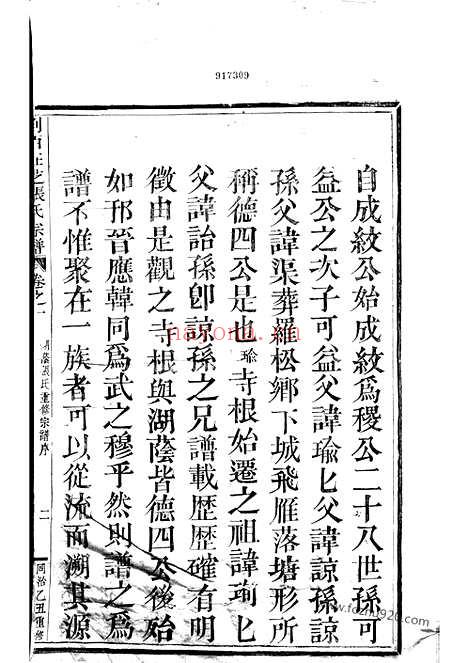 917309
自成紋公始成紋爲稷公二十八世孫可
益公之次子可益父諱瑜匕父諱諒孫諒
孫父諱渠葬羅松鄉下城飛雁落塘形所
稱德四公是也瑜寺根始遷之祖諱瑜匕
父諱詒孫卽諒孫之兄譜載歴歴確有明
徵由是觀之寺根與湖蔭皆德四公後始
如邘晉應韓同爲武之穆乎然則譜之爲
譜不惟聚在一族者可以從流而溯其源
張氏宗譜
卷之一
湖蔭張氏重修宗譜序
二
同治乙丑重修
nayona.cn
www.fozhu920.com